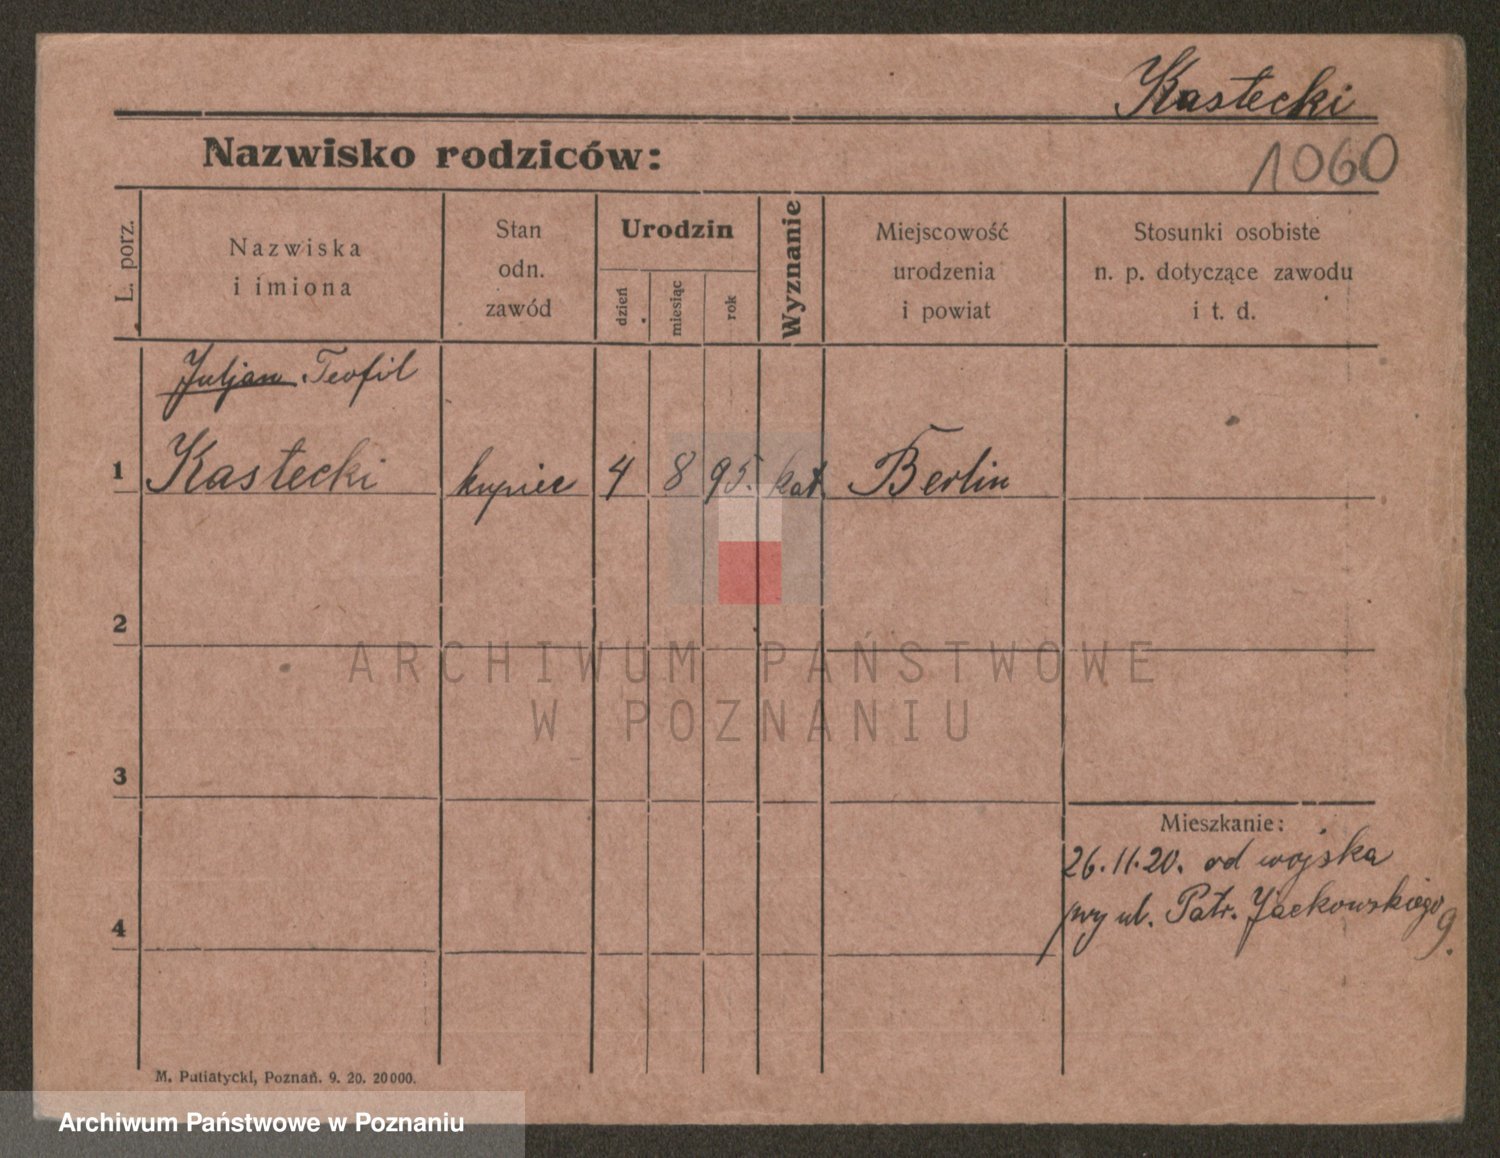 Kastecki
Nazwisko rodziców:
1060
L. porz.
Nazwiska
i imiona
Stan
odn.
zawód
Urodzin
dzień
miesiąc
rok
Wyznanie
Miejscowość
urodzenia
i powiat
Stosunki osobiste
n. p. dotyczące zawodu
i t. d.
Juljan Teofil
1 Kastecki kupiec 4 8 95. kat Berlin
2
ARCHIWUM PAŃSTWOWE
W POZNANIU
3
Mieszkanie:
26.11.20. od wojska
przy ul. Patr. Jackowskiego 9.
4
M. Putiatycki, Poznań. 9. 20. 20000.
Archiwum Państwowe w Poznaniu